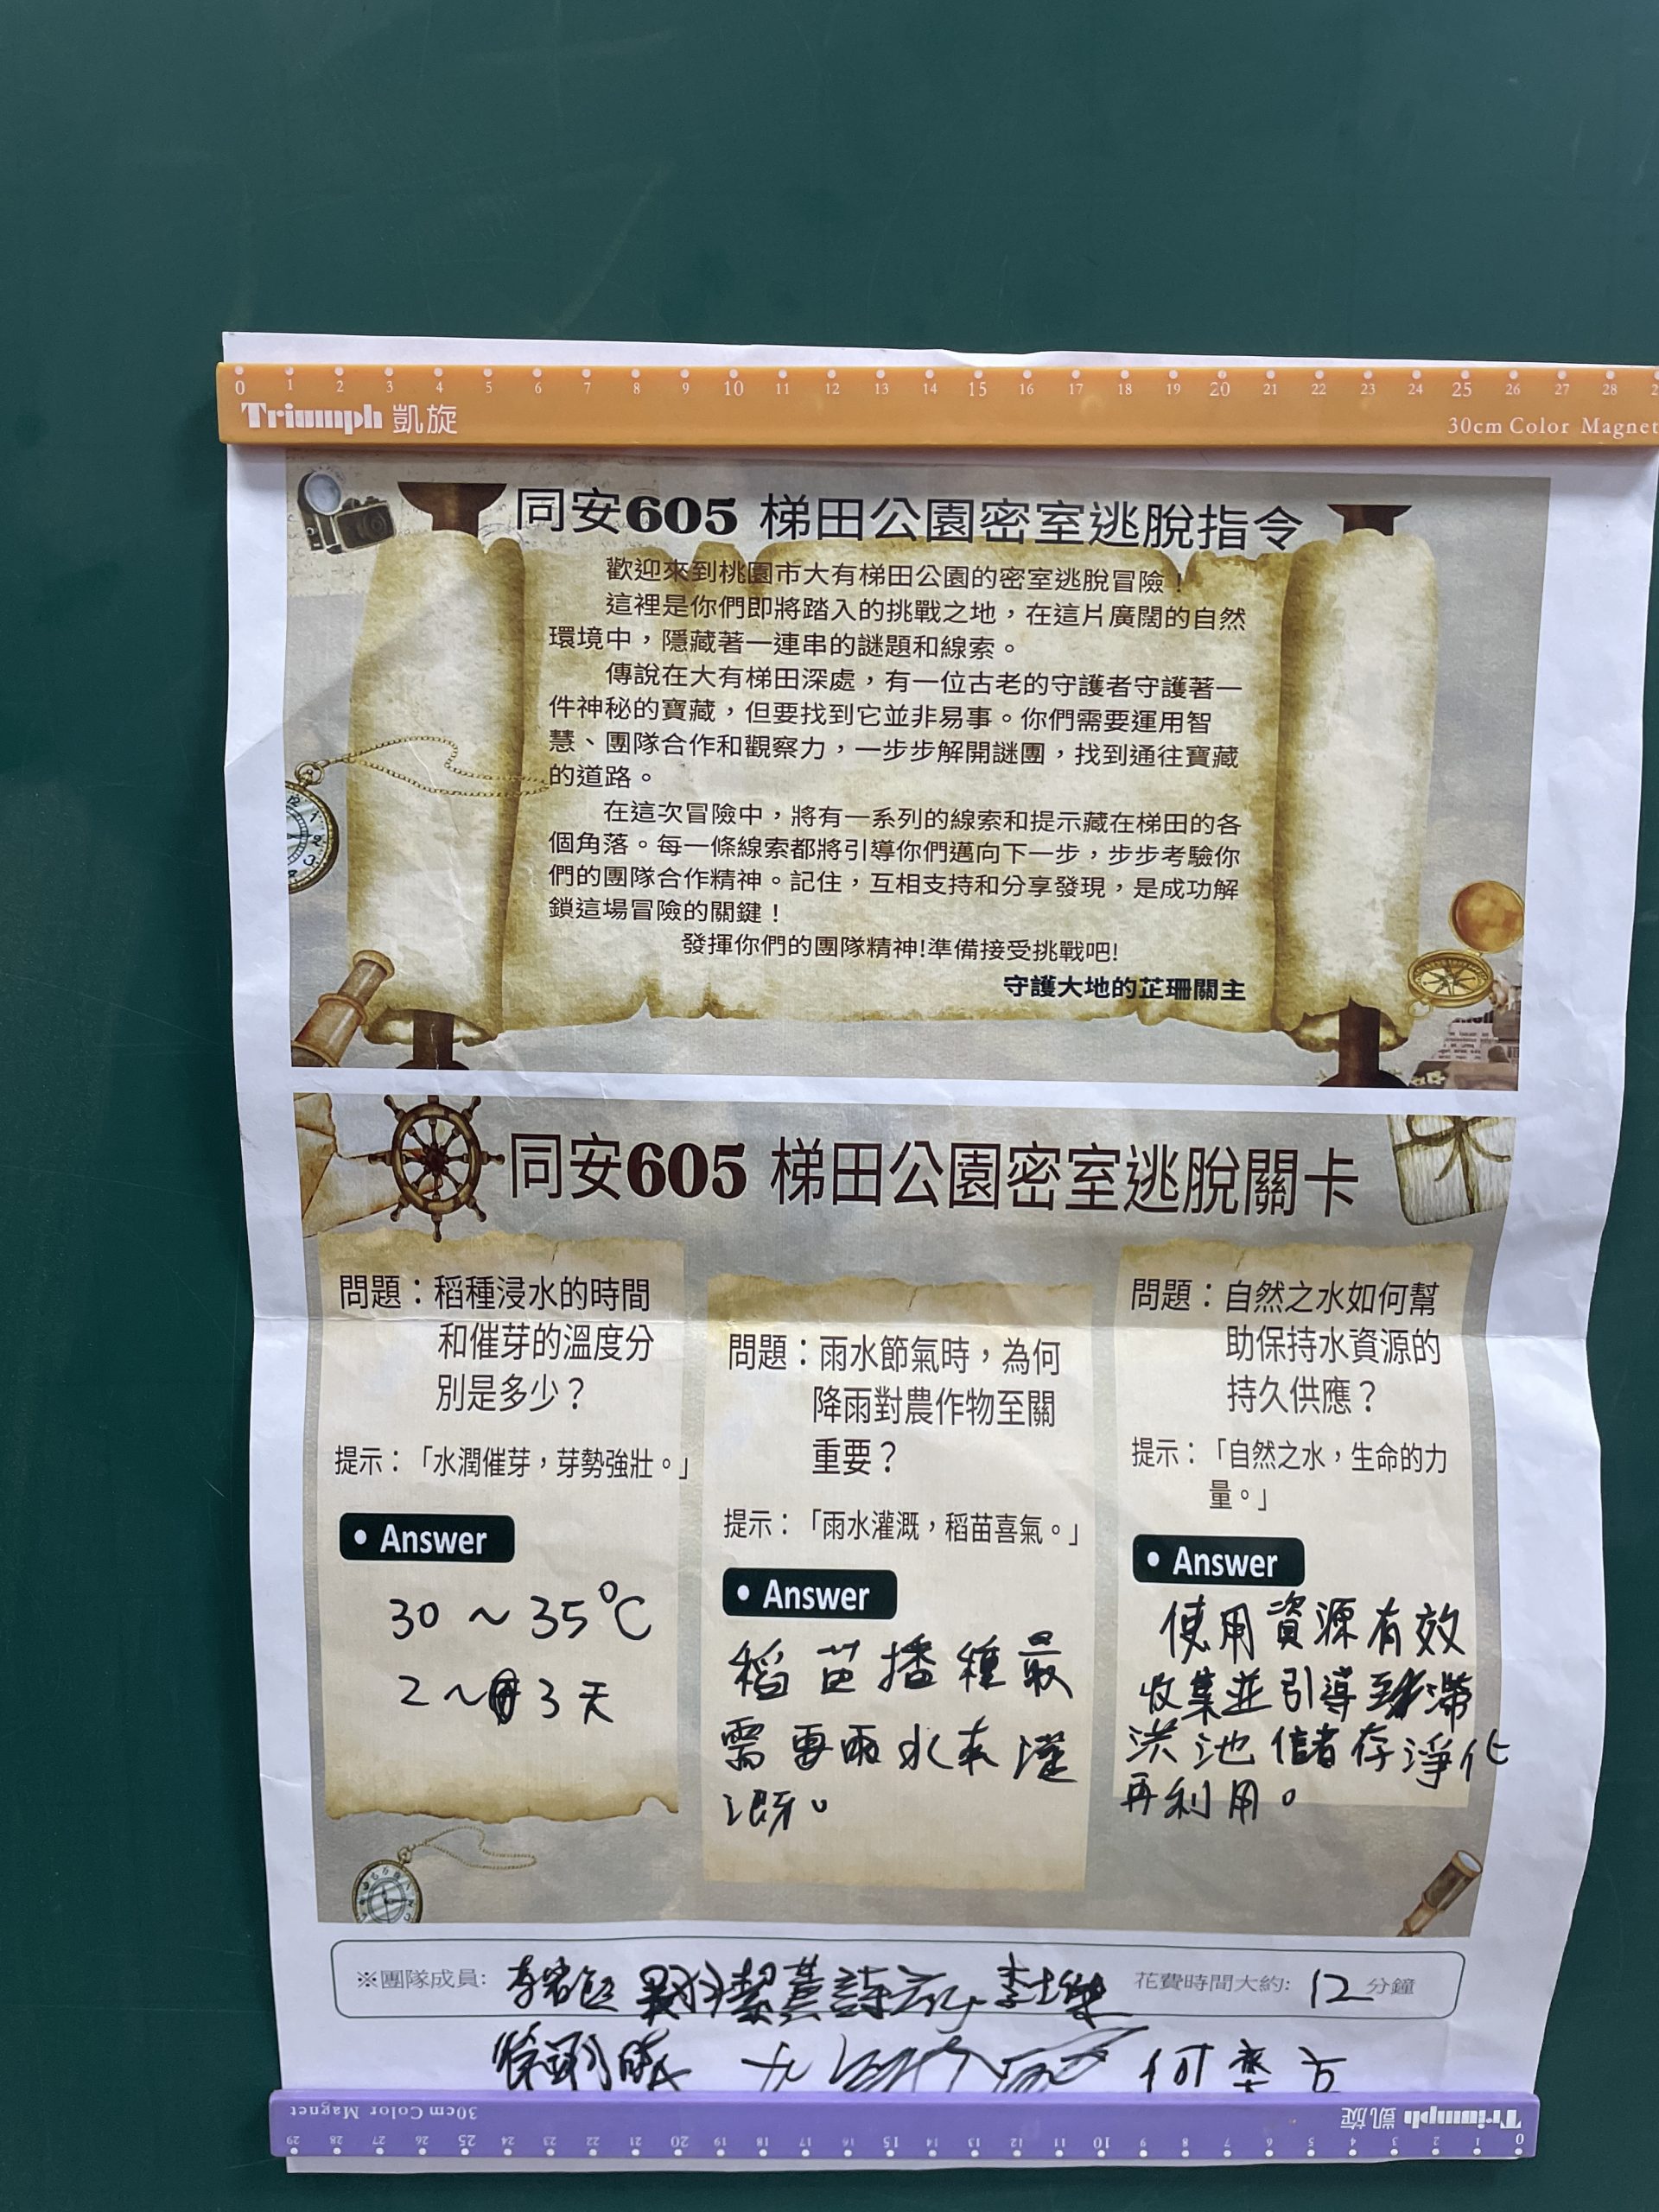 0 1 2 3 4 5 6 7 8 9 10 11 12 13 14 15 16 17 18 19 20 21 22 23 24 25 26 27 28
Triumph 凱旋
30cm Color Magnet
同安605 梯田公園密室逃脫指令
歡迎來到桃園市大有梯田公園的密室逃脫冒險！
這裡是你們即將踏入的挑戰之地，在這片廣闊的自然
環境中，隱藏著一連串的謎題和線索。
傳說在大有梯田深處，有一位古老的守護者守護著一
件神秘的寶藏，但要找到它並非易事。你們需要運用智
慧、團隊合作和觀察力，一步步解開謎團，找到通往寶藏
的道路。
在這次冒險中，將有一系列的線索和提示藏在梯田的各
個角落。每一條線索都將引導你們邁向下一步，步步考驗你
們的團隊合作精神。記住，互相支持和分享發現，是成功解
鎖這場冒險的關鍵！
發揮你們的團隊精神!準備接受挑戰吧!
守護大地的芷珊關主
同安605 梯田公園密室逃脫關卡
問題：稻種浸水的時間
和催芽的溫度分
別是多少？
提示：「水潤催芽，芽勢強壯。」
• Answer
30 ~ 35°C
2 ~ 3 天
問題：雨水節氣時，為何
降雨對農作物至關
重要？
提示：「雨水灌溉，稻苗喜氣。」
• Answer
稻苗播種最
需要雨水來灌
溉。
問題：自然之水如何幫
助保持水資源的
持久供應？
提示：「自然之水，生命的力
量。」
• Answer
使用資源有效
收集並引導到滯
洪池儲存淨化
再利用。
※團隊成員:
花費時間大約: 12 分鐘
30cm Color Magnet
Triumph 凱旋
29 28 27 26 25 24 23 22 21 20 19 18 17 16 15 14 13 12 11 10 9 8 7 6 5 4 3 2 1 0